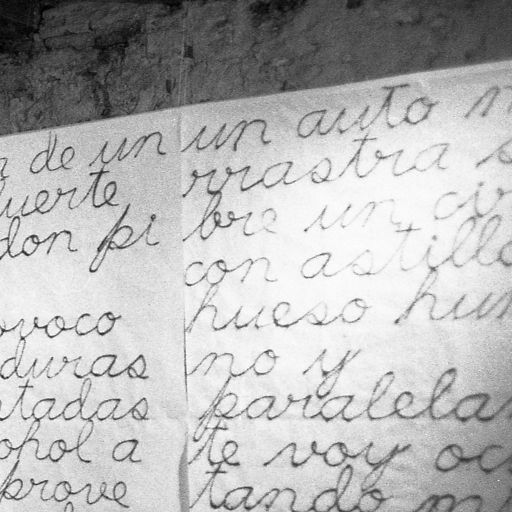 de un
uerte
don pi
ovoco
duras
tadas
ohol a
prove
un auto
rrastra
bre un
con astill
hueso hu
no y
paralela
te voy oc
tando